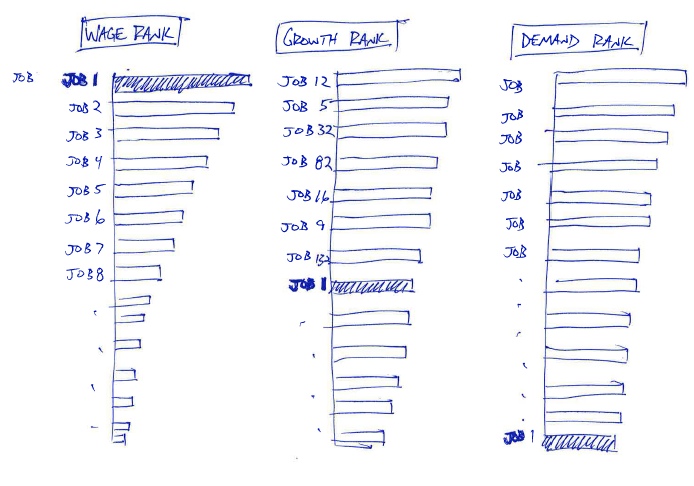 WAGE RANK
JOB
JOB 1
JOB 2
JOB 3
JOB 4
JOB 5
JOB 6
JOB 7
JOB 8
GROWTH RANK
JOB 12
JOB 5
JOB 32
JOB 82
JOB 16
JOB 9
JOB 132
JOB 1
DEMAND RANK
JOB
JOB
JOB
JOB
JOB
JOB
JOB
JOB 1